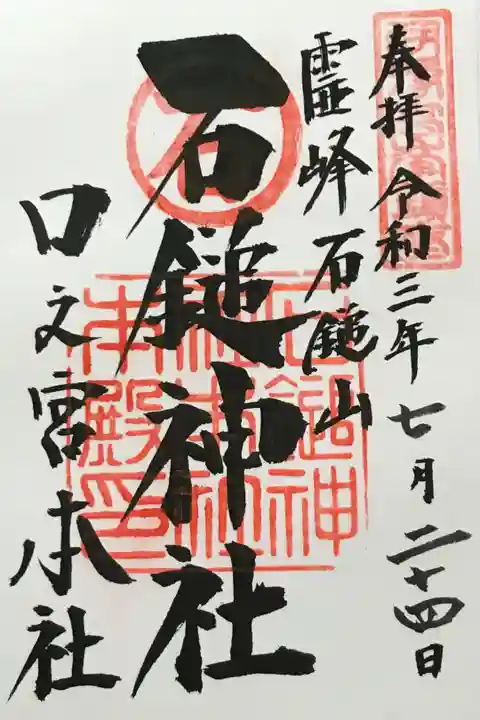 奉拝 令和三年七月二十四日
霊峰 石鎚山
石鎚神社
口之宮本社
石鎚神
社本社
本殿印